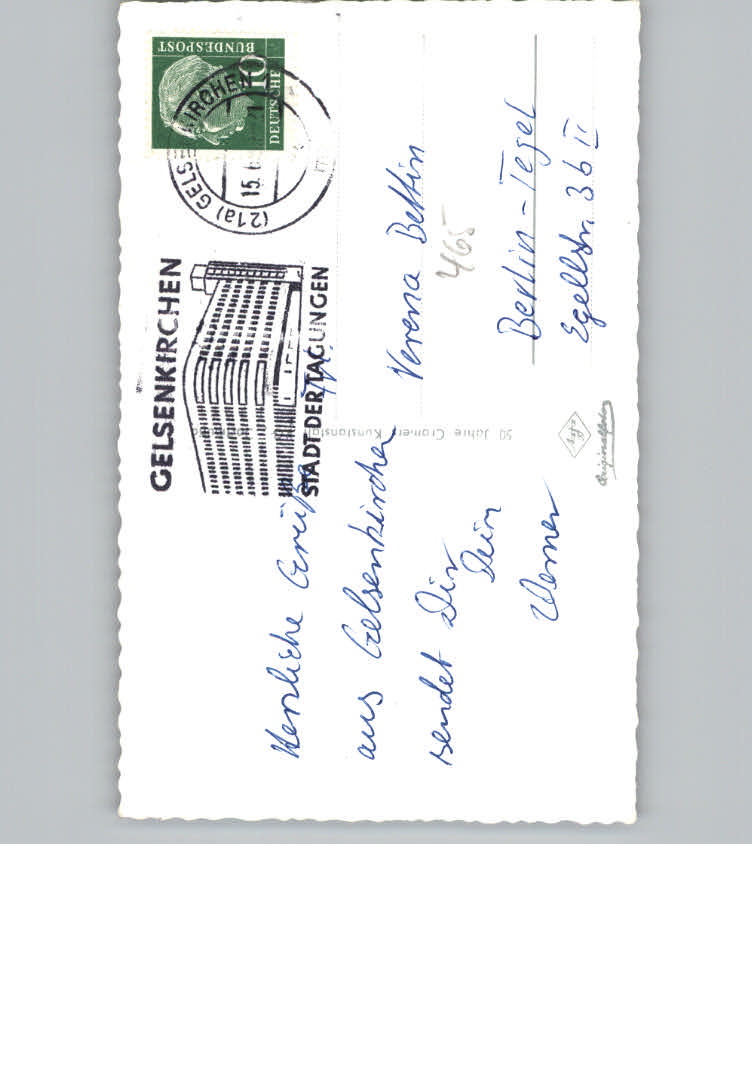 DEUTSCHE
BUNDESPOST
10
(21a) GELSENKIRCHEN
15. 6
GELSENKIRCHEN
STADT DER TAGUNGEN
Herzliche Grüße
aus Gelsenkirchen
sendet Dir
Dein
Werner
Verena Bettin
465
Berlin-Tegel
Egellstr. 36 II
50 Jahre Cramers Kunstanstalt
Originalfoto